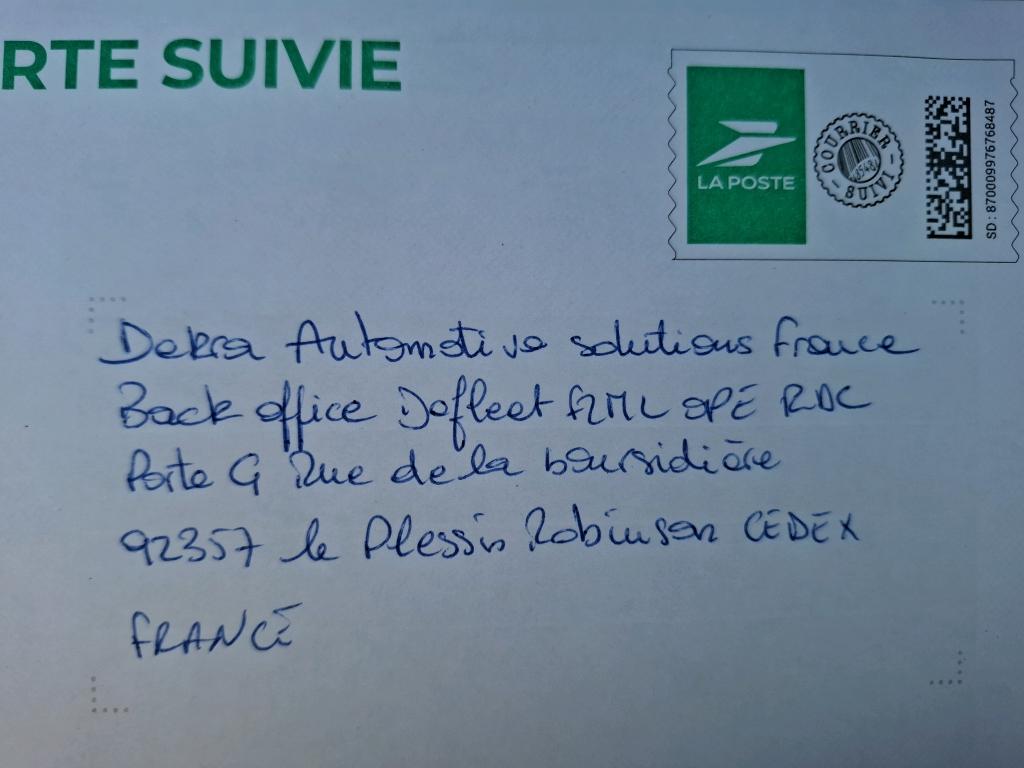 RTE SUIVIE
LA POSTE
COURRIER
SUIVI
SD : 870009976768487
Dekra Automotive solutions france
Back office Defleet OPE RDC
Porte G Rue de la boursidière
92357 le Plessis Robinson CEDEX
FRANCE